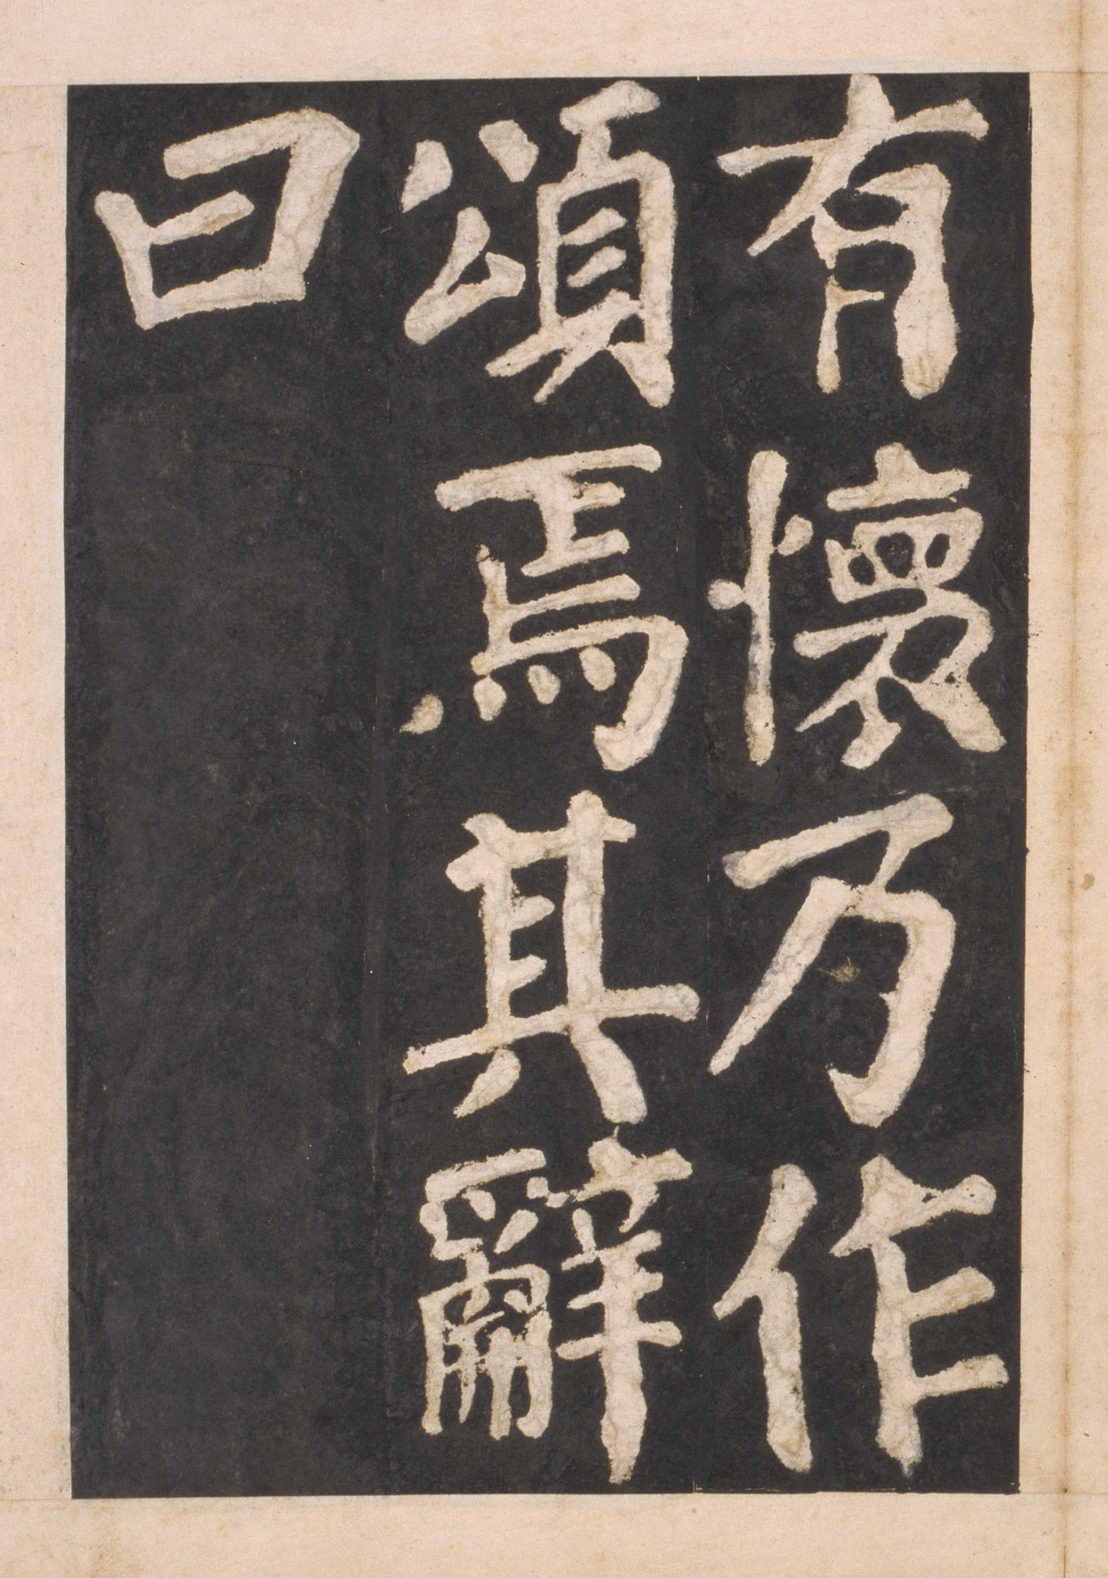 有懷乃作
頌焉其辭
曰